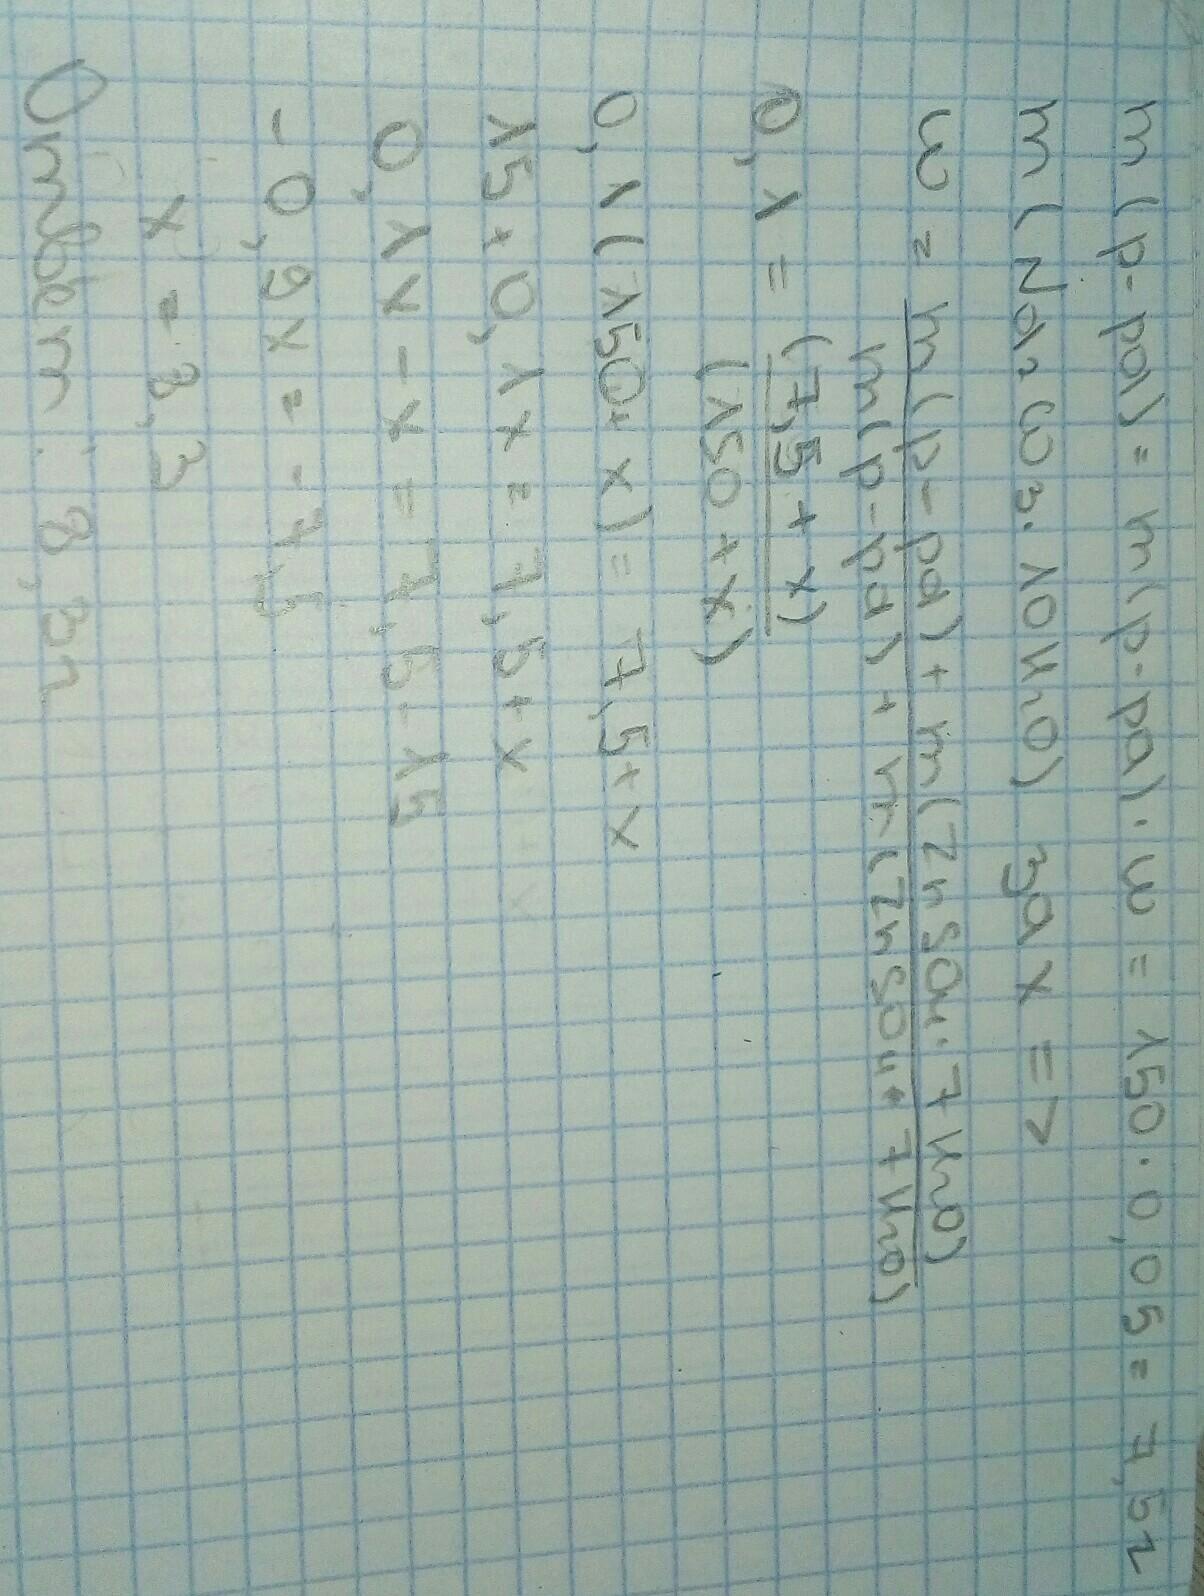 m(р-ра) = m(р-ра)·ω = 150·0,05 = 7,5г
m(Na₂CO₃·10H₂O) за x =>
ω = m(р-ра) + m(ZnSO₄·7H₂O)
m(р-ра) + m(ZnSO₄·7H₂O)
0,1 = (7,5 + x)
(150 + x)
0,1(150 + x) = 7,5 + x
15 + 0,1x = 7,5 + x
0,1x - x = 7,5 - 15
-0,9x = -7,5
x = 8,3
Ответ: 8,3г